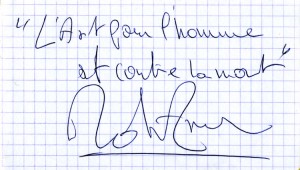 "L'Art pour l'homme
et contre la mort"